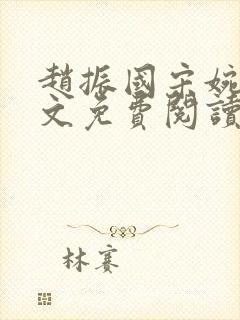 趙振國宋婉
文免費閱讀
林賽